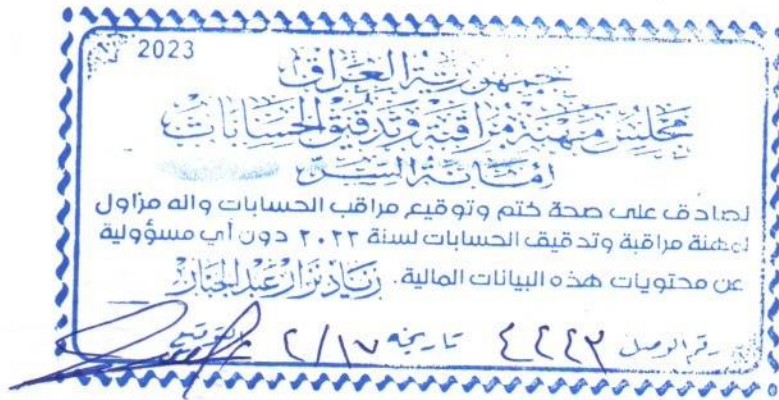 2023
جمهورية العراق
مجلس مهنة مراقبة وتدقيق الحسابات
امانة السر
نصادق على صحة ختم وتوقيع مراقب الحسابات وانه مزاول
لمهنة مراقبة وتدقيق الحسابات لسنة ٢٠٢٣ دون أي مسؤولية
عن محتويات هذه البيانات المالية. زياد نزار عبد الجبار
رقم الوصل ٤٢٢٣ تاريخه ٢/١٧ التوقيع